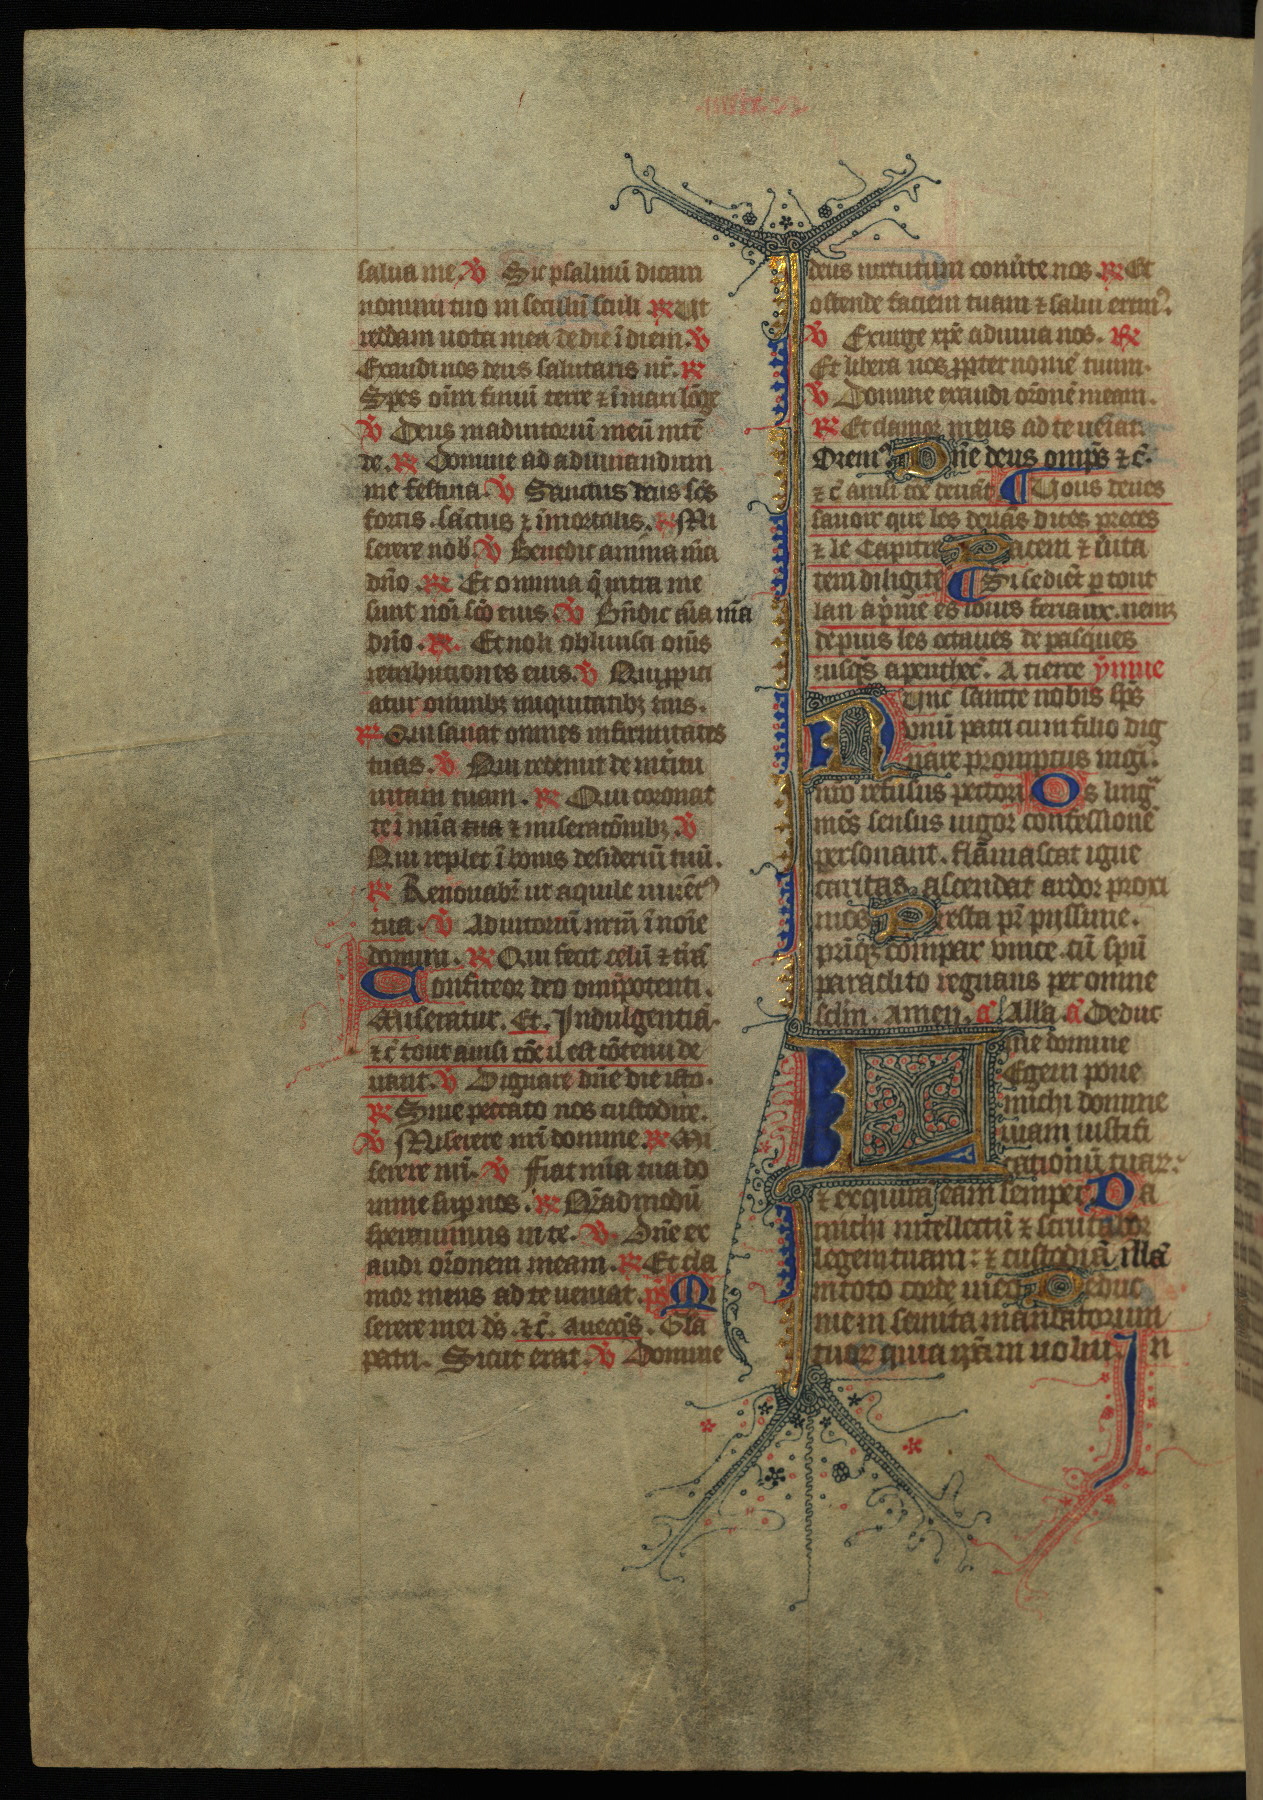 salua me. V Sic psalmū dicam
nomini tuo in seculū sc̄li R Ut
reddam uota mea de die ī diem. V
Exaudi nos deus salutaris nr̄. R
Spes oīm finiū terre ⁊ ī mari lōge
V Deus in adiutoriū meū intē
de. R Domine ad adiuuandum
me festina. V Sanctus deus sc̄s
fortis. sāctus ⁊ īmortalis. R Mi
serere nob̄. V Benedic anima m̄a
dn̄o. R Et omnia q̄ intra me
sunt noī sc̄o eius. V Bn̄dic aīa m̄a
dn̄o. R Et noli obliuisci om̄s
retributiones eius. V Qui ꝓpici
atur omnibꝫ iniquitatibꝫ tuis.
R Qui sanat omnes infirmitates
tuas. V Qui redemit de int̄itu
uitam tuam. R Qui coronat
te ī mīa tua ⁊ miseratōnibꝫ V
Qui replet ī bonis desideriū tuū.
R Renouabr̄ ut aquile iuuēt⁹
tua. V Adiutoriū nr̄m ī noīe
domini. R Qui fecit celū ⁊ tr̄ā
Confiteor deo om̄ipotenti.
Miseratur. Et. Indulgentiā.
⁊ c̄ tout ausi cōe il est cōtenu de
uant. V Dignare dn̄e die isto.
R Sine peccato nos custodire.
V Miserere nr̄i domine. R Mi
serere nr̄i. V Fiat mīa tua do
mine suꝑ nos. R Qēadmodū
sperauimus in te. V Dn̄e ex
audi or̄onem meam. R Et cla
mor meus ad te ueniat. ps̄ Mi
serere mei ds̄ ⁊ c̄. auecq̄s. Gl̄a
patri. Sicut erat. V Domine
deus uirtutum conūte nos. R Et
ostende faciem tuam ⁊ salui erim⁹.
V Exurge xp̄e adiuua nos. R
Et libera nos ꝓpter nomē tuum.
V Domine exaudi or̄onē meam.
R Et clamor meus ad te ueīat.
Orem⁹ Dn̄e deus omp̄s ⁊ c̄.
⁊ c̄ ausi cōe deuāt Uous deues
sauoir que les deuās dites preces
⁊ le Capitre Pacem ⁊ ūita
tem diligite Si se diēt p tout
lan a ꝑme es iours feriaux. neūs
depuis les octaues de pasques
iusq̄s a penthec̄. A tierce ẏmne
Nunc sancte nobis sp̄s
vnū patri cum filio dig
nare promptus ingi.
nr̄o refusus pectori Os ling
mēs sensus uigor confessionē
personant. flāmascat igne
caritas ascendat ardor proxi
mos Presta pr̄ pijssime.
pr̄iq̄ꝫ compar vnice. cū sp̄u
paraclito regnans per omne
sclm̄. Amen. a Alla. a Deduc
me domine
Legem pone
michi domine
uiam iustifi
cationū tuaꝝ.
⁊ exquirā eam semper Da
michi intellectū ⁊ scrutabor
legem tuam: ⁊ custodiā illā
in toto corde meo Deduc
me in semita mandatorum
tuoꝝ quia ip̄am uolui. In